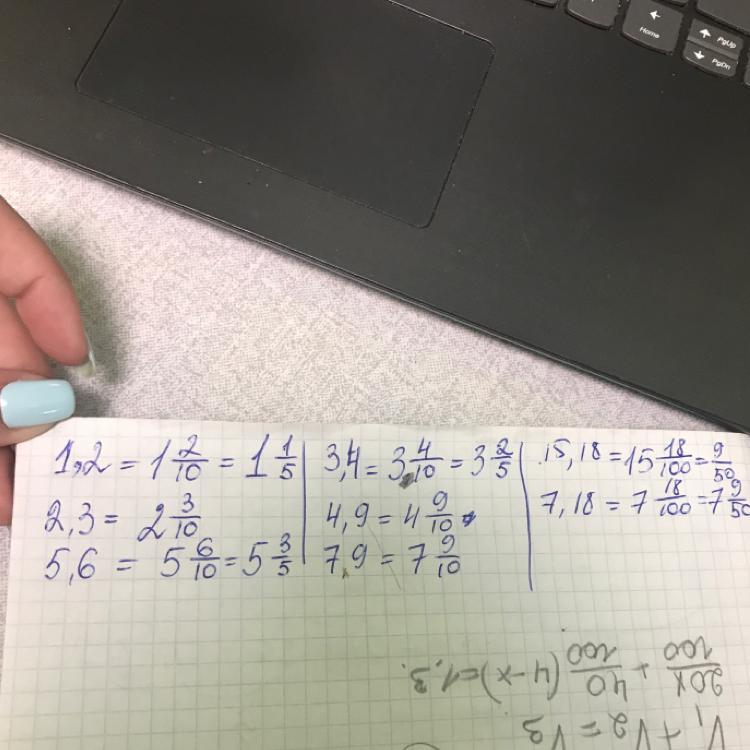 Home
PgUp
PgDn
1,2 = 1 2/10 = 1 1/5
2,3 = 2 3/10
5,6 = 5 6/10 = 5 3/5
3,4 = 3 4/10 = 3 2/5
4,9 = 4 9/10
7,9 = 7 9/10
15,18 = 15 18/100 = 9/50
7,18 = 7 18/100 = 7 9/50
V₁ + V₂ = V₃
20x/100 + 40/100 (4-x) = 1,3.